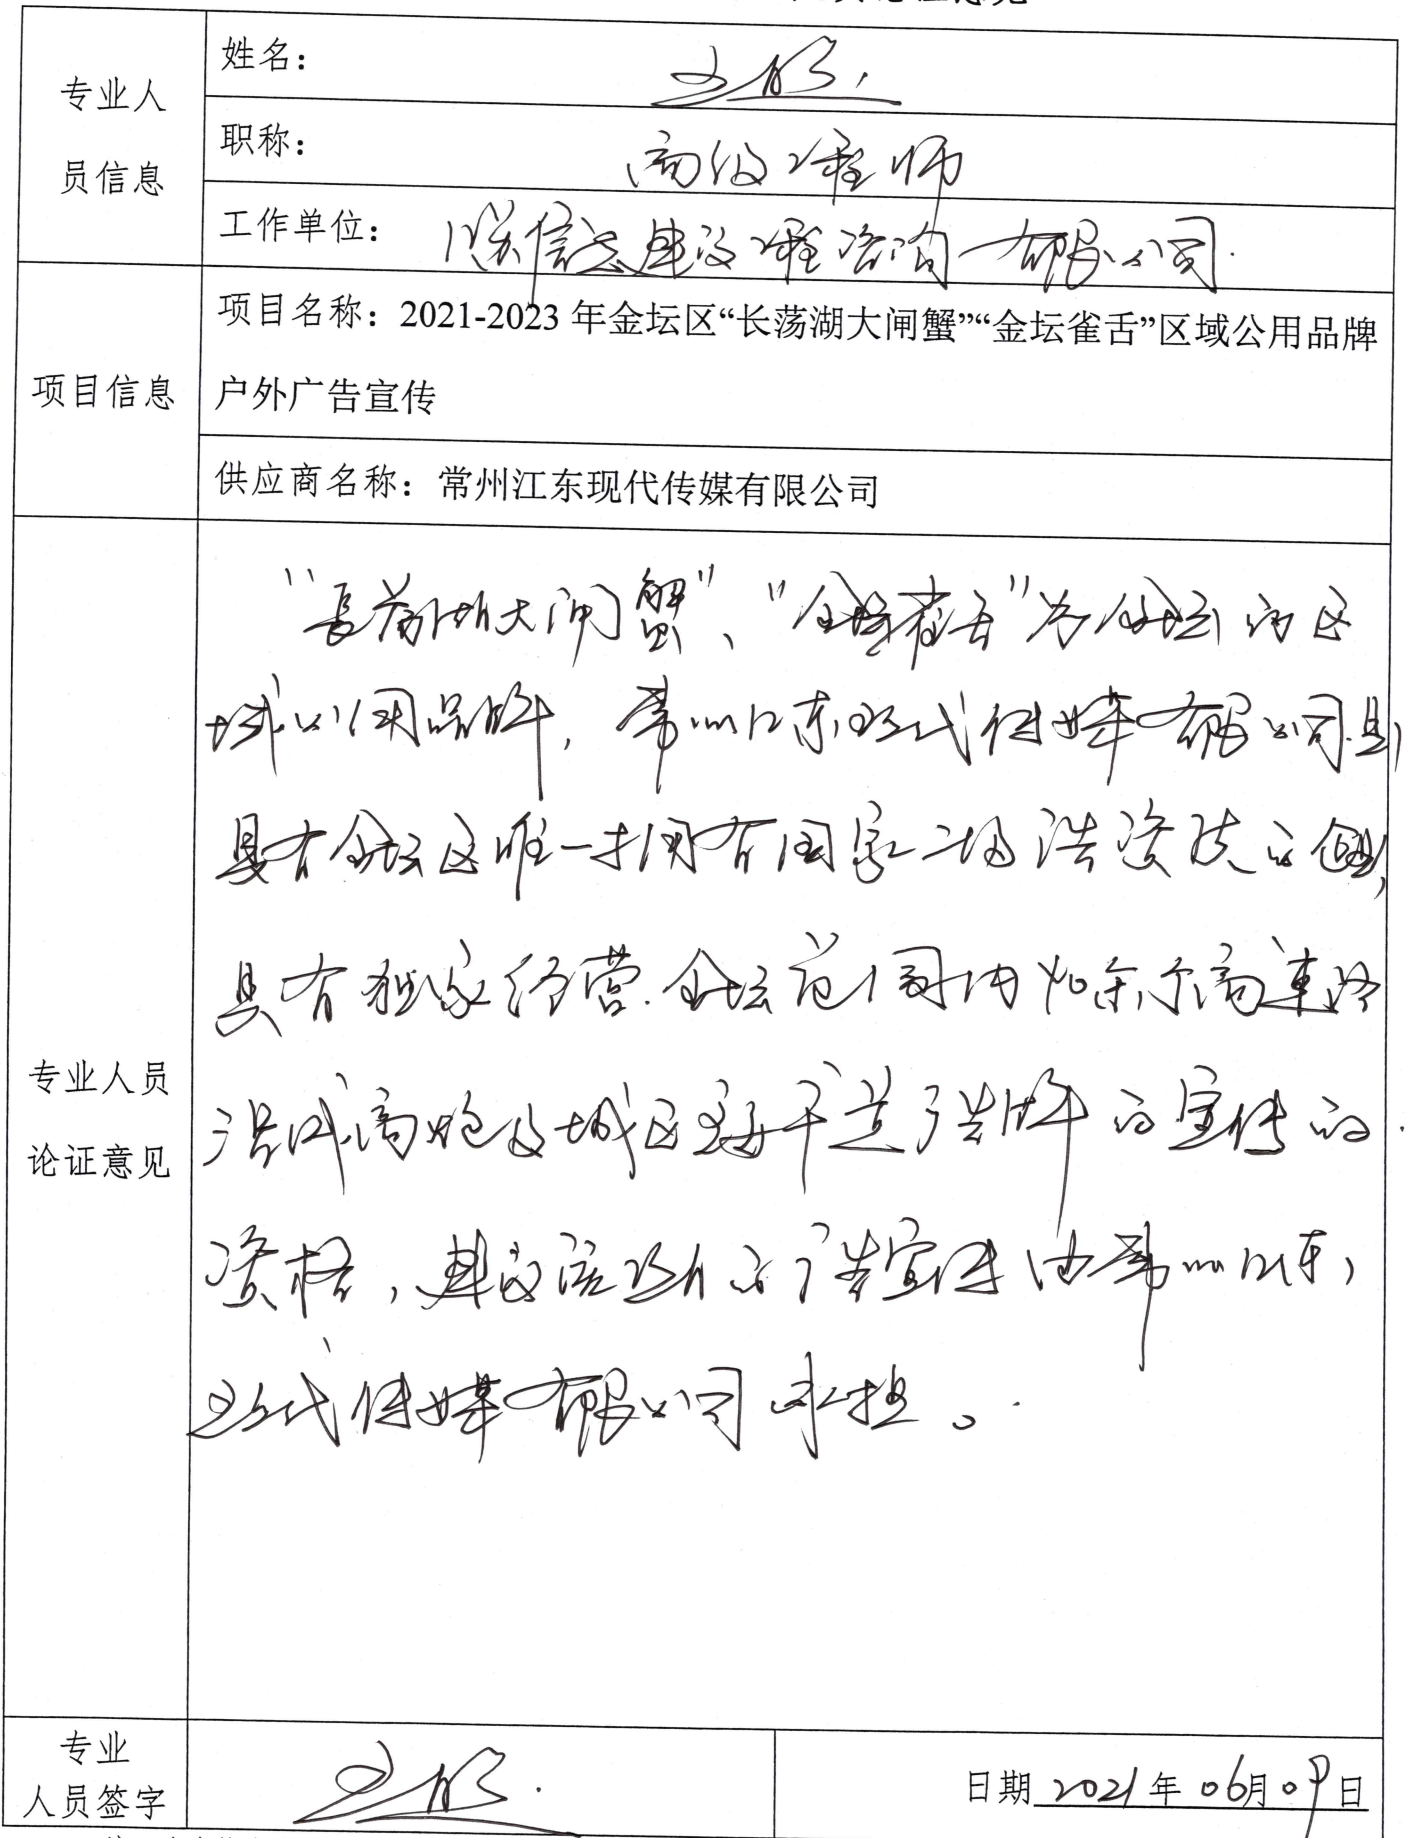 专业人
员信息
姓名：
职称：
高级工程师
工作单位：
信 建设工程咨询有限公司
项目信息
项目名称：2021-2023 年金坛区“长荡湖大闸蟹”“金坛雀舌”区域公用品牌
户外广告宣传
供应商名称：常州江东现代传媒有限公司
专业人员
论证意见
“長荡湖大闸蟹”、“金坛雀舌”为金坛的区
域公用品牌，常州江东现代传媒有限公司是
具有金坛区唯一拥有国家二级 资质的企业，
具有独家经营.金坛范围内 高速路
高炮及城区主要干道广告牌的宣传的
资格，建议该项目的广告宣传由常州江东
现代传媒有限公司承担。
专业
人员签字
日期 2021 年 06月 09 日